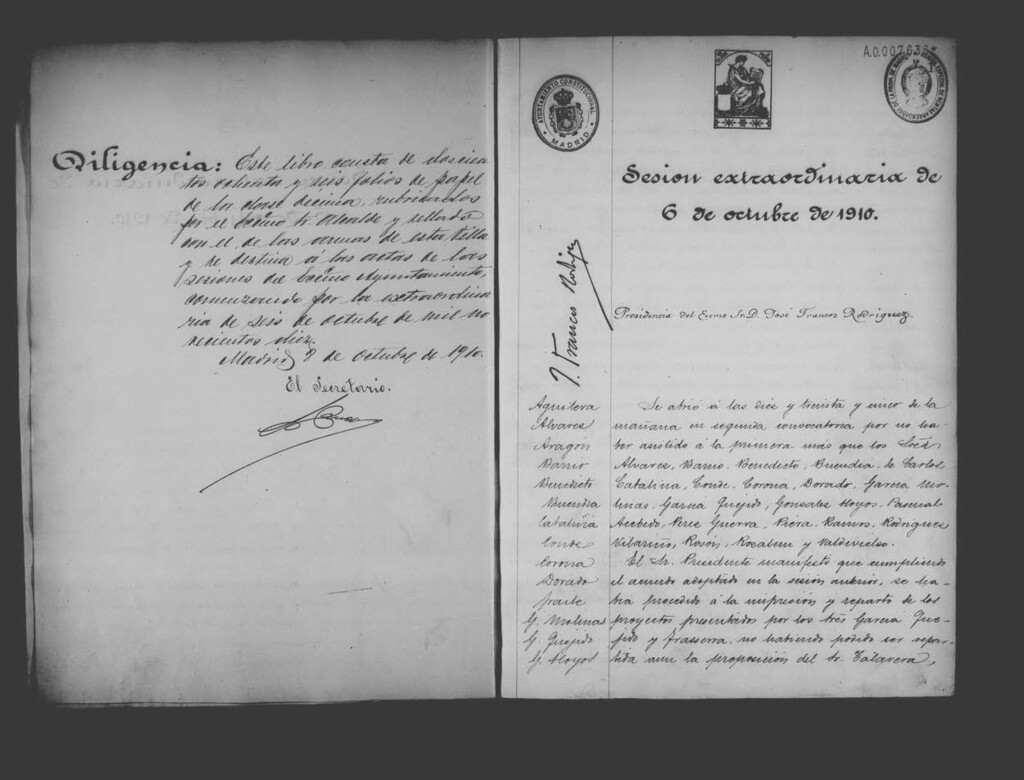 Diligencia: Este libro consta de doscien
tos ochenta y seis folios de papel
de la clase décima, rubricados
por el Excmo Sr. Alcalde y sellados
con el de las armas de esta Villa
y se destina á las actas de las
sesiones del Excmo Ayuntamiento,
comenzando por la extraordina
ria de seis de octubre de mil no
vecientos diez
Madrid 8 de octubre de 1910.
El Secretario.
A.0.007.636
AYUNTAMIENTO CONSTITUCIONAL
MADRID
Sesion extraordinaria de
6 de octubre de 1910.
J. Franco Rodríguez
Presidencia del Excmo Sr. D. José Francos Rodriguez
Aguilera
Alvares
Aragón
Barrio
Benedicto
Buendia
Cataluña
Conde
Corona
Dorado
Fraile
G. Molinas
G. Quejido
G. Hoyos
Se abrió á las diez y treinta y cinco de la
mañana en segunda convocatoria por no ha
ber asistido á la primera más que los Sres
Alvares, Barrio, Benedicto, Buendia, de Carlos
Catalina, Conde, Corona, Dorado, Garcia Mo
linas, Garcia Quejido, Gonzalez Hoyos, Pascual
Acebedo, Perez Guerra, Piera, Ramos, Rodrigues
Vilariño, Rosón, Rozalem y Valdivieso.
El Sr. Presidente manifestó que cumpliendo
el acuerdo adoptado en la sesión anterior, se ha-
bia procedido á la impresión y reparto de los
proyectos presentados por los sres Garcia Que
jido y Frasserra, no habiendo podido ser repar-
tida aun la proposición del Sr. Talavera,